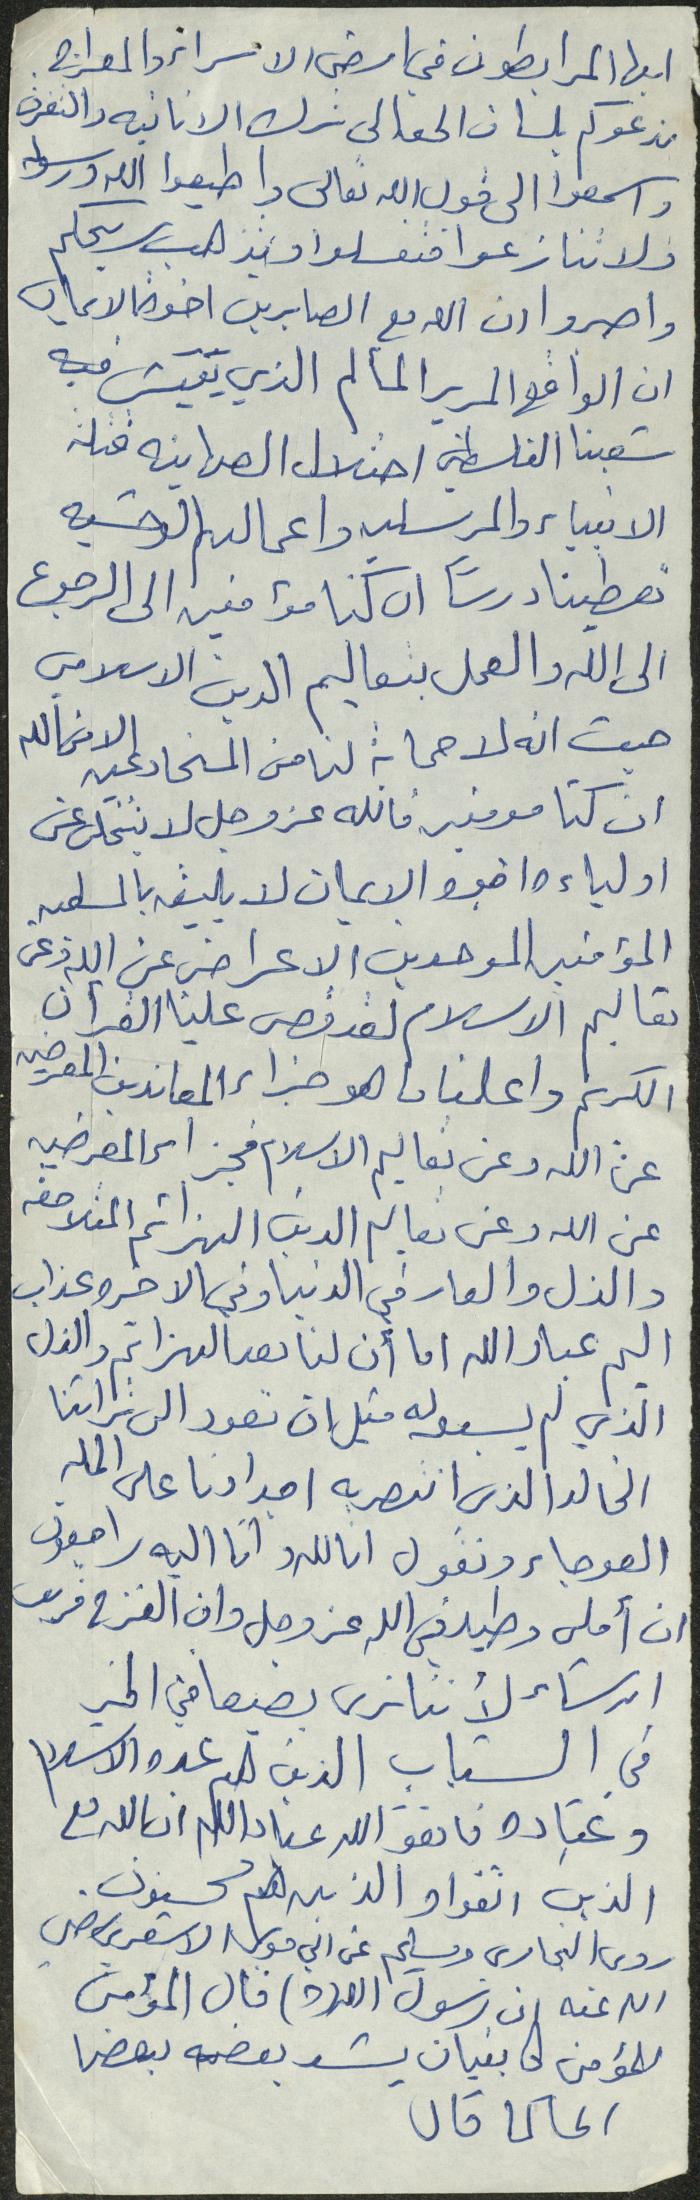 ايها المرابطون في ارض الاسراء والمعراج.
ندعوكم بلسان الحق الى ترك الانانيه والتفرق
واسمعوا الى قول الله تعالى واطيعوا الله ورسوله
ولا تنازعوا فتفشلوا وتذهب ريحكم
واصبروا ان الله مع الصابرين اخوة الايمان
ان الواقع المرير المؤلم الذي يعيش فيه
شعبنا الفلسطيني احتلال الصهاينه قتلة
الانبياء والمرسلين واعمالهم الوحشيه
تعطينا درساً ان كنا مؤمنين الى الرجوع
الى الله والعمل بتعاليم الدين الاسلامي
حيث انه لا حماية لنا من المخادعين الا من الله
ان كنا مومنين فالله عز وجل لا يتخلى عن
اولياءه اخوة الايمان لا يليق بالمسلمين
المؤمنين الموحدين الاعراض عن الله وعن
تعاليم الاسلام لقد قص علينا القرآن
الكريم واعلنا ما هو جزاء المعاندين المعرضين
عن الله وعن تعاليم الاسلام فجزاء المعرضين
عن الله وعن تعاليم الدين الهزائم المتلاحقه
والذل والعار في الدنيا وفي الاخره عذاب
اليم عباد الله اما أن لنا بعد الهزائم والذل
الذي لم يسبق له مثيل ان نعود الى تراثنا
الخالد الذي انتصر به اجدادنا على المله
العوجاء ونقول انا لله وانا اليه راجعون
ان أملي وطيد في الله عز وجل وان الفرج قريب
ان شاء لأننا نرى بصيصا من الخير
في الشباب الذين هم عده الاسلام
وعتاده فاتقوا الله عباد الله ان الله مع
الذين اتقوا والذين هم محسنون.
روى البخاري ومسلم عن ابي موسى الاشعري رضي
الله عنه ان رسول الله (ص) قال المؤمن
للمؤمن كالبنيان يشد بعضه بعضا
او كما قال